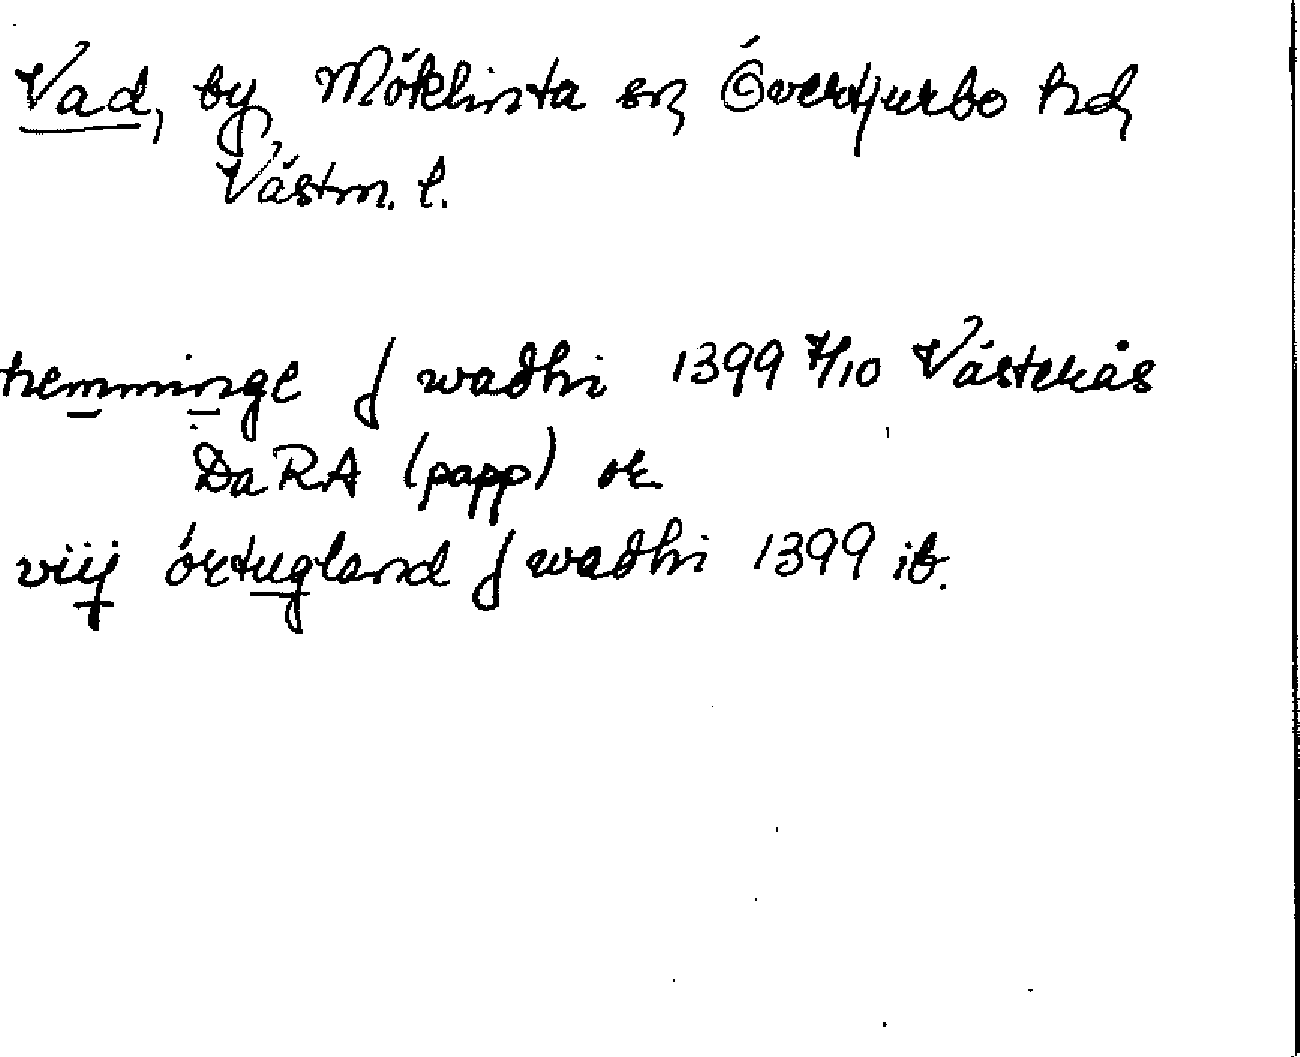 Vad, by, Möklinta sn, Övertjurbo hd,
Västm. l.
hemminge j wadhi 1399 7/10 Västerås
DaRA (papp) ok
viij örtugland j wadhi 1399 ib.